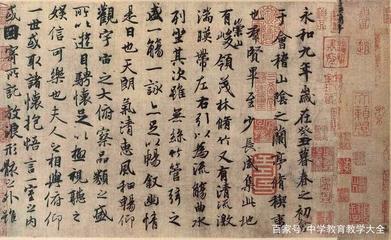 永和九年歲在癸丑暮春之初會
于會稽山陰之蘭亭脩稧事
也羣賢畢至少長咸集此地
有崇山峻領茂林脩竹又有清流激
湍暎帶左右引以為流觴曲水
列坐其次雖無絲竹管弦之
盛一觴一詠亦足以暢敘幽情
是日也天朗氣清惠風和暢仰
觀宇宙之大俯察品類之盛
所以遊目騁懷足以極視聽之
娛信可樂也夫人之相與俯仰
一世或取諸懷抱悟言一室之內
或因寄所託放浪形骸之外雖
百家号/中学教育教学大全